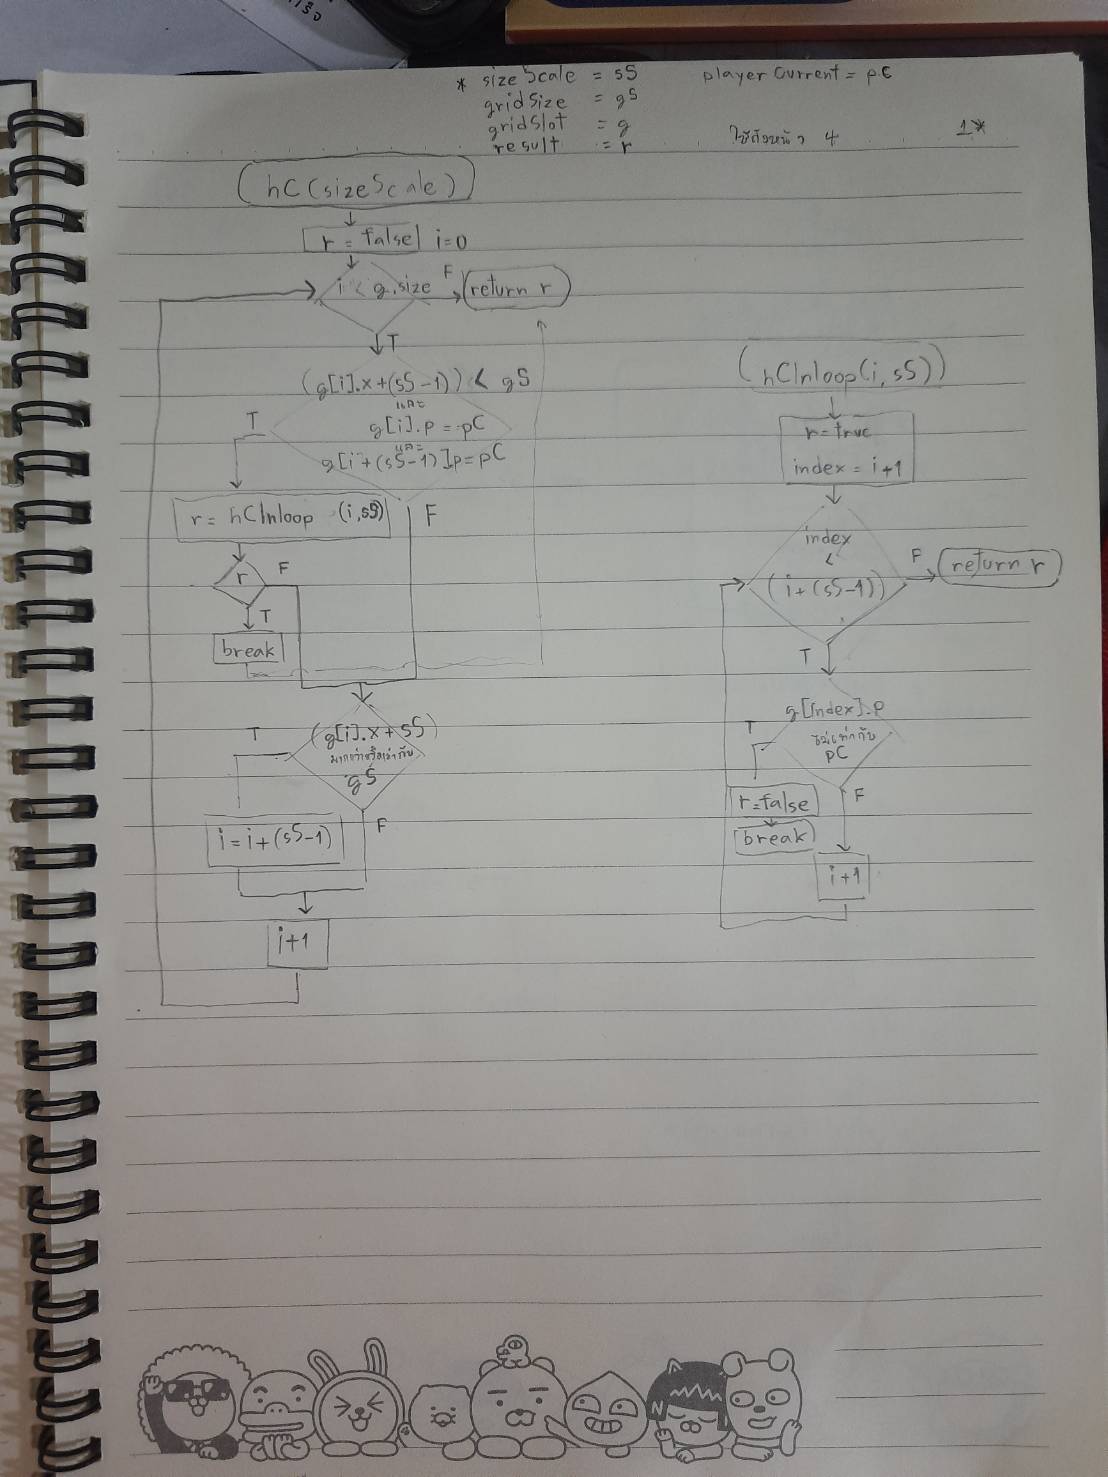 * sizeScale = sS
playerCurrent = pC
gridSize = gS
gridSlot = g
result = r
ใช้ถึงหน้า 4
1*
hC(sizeScale)
r = false i=0
i < g.size
F
return r
T
(g[i].x+(sS-1)) < gS
และ
g[i].p = pC
และ
g[i+(sS-1)].p = pC
T
F
r = hCInloop (i,sS)
r
F
T
break
T
(g[i].x + sS)
มากกว่าหรือเท่ากับ
gS
F
i = i+(sS-1)
i+1
hCInloop(i,sS)
r=true
index = i+1
index
<
(i+(sS-1))
F
return r
T
g[index].p
ไม่เท่ากับ
pC
T
F
r=false
break
i+1
N